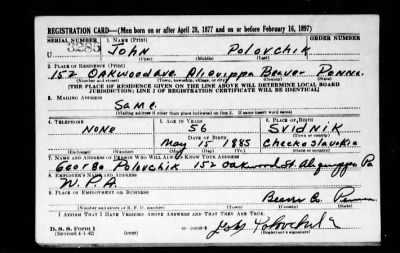 REGISTRATION CARD—(Men born on or after April 28, 1877 and on or before February 16, 1897)
SERIAL NUMBER 1. NAME (Print) ORDER NUMBER
U 3285 John Polovchik
(First) (Middle) (Last)
2. PLACE OF RESIDENCE (Print)
152 Oakwood Ave Aliquippa Beaver Penna.
(Number and street) (Town, township, village, or city) (County) (State)
[THE PLACE OF RESIDENCE GIVEN ON THE LINE ABOVE WILL DETERMINE LOCAL BOARD
JURISDICTION; LINE 2 OF REGISTRATION CERTIFICATE WILL BE IDENTICAL]
3. MAILING ADDRESS
Same
[Mailing address if other than place indicated on line 2. If same insert word same]
4. TELEPHONE 5. AGE IN YEARS 6. PLACE OF BIRTH
None 56 Svidnik
DATE OF BIRTH
May 15 1885 Checkoslavokia
(Exchange) (Number) (Mo.) (Day) (Yr.) (State or country)
7. NAME AND ADDRESS OF PERSON WHO WILL ALWAYS KNOW YOUR ADDRESS
George Polovchik 152 Oakwood St. Aliquippa Pa
8. EMPLOYER'S NAME AND ADDRESS
W.P.A.
9. PLACE OF EMPLOYMENT OR BUSINESS
Beaver Co. Penna
(Number and street or R. F. D. number) (Town) (County) (State)
I AFFIRM THAT I HAVE VERIFIED ABOVE ANSWERS AND THAT THEY ARE TRUE.
D. S. S. Form 1
(Revised 4-1-42) (over)
(Registrant's signature)